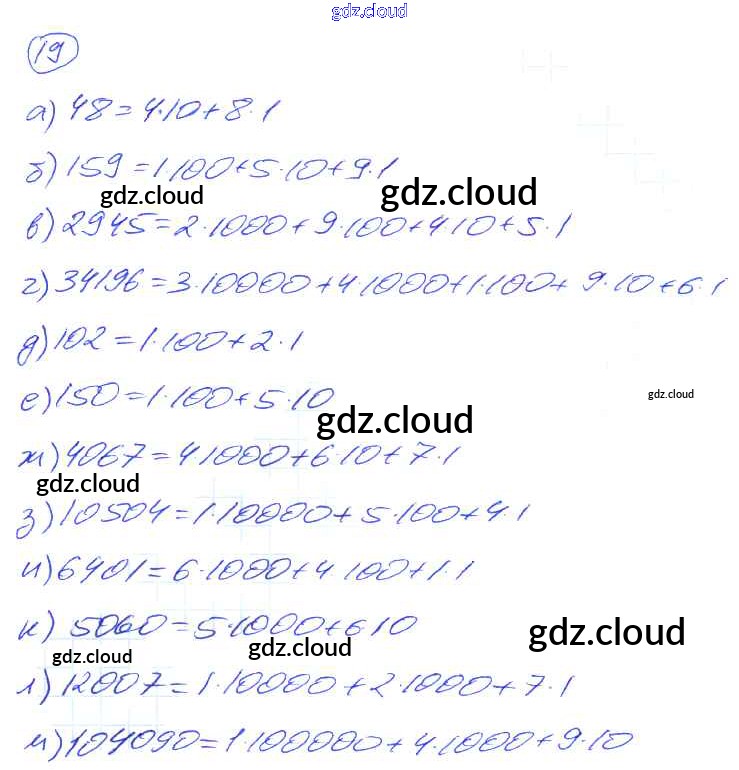 gdz.cloud
19
а) 48=4·10+8·1
б) 159=1·100+5·10+9·1
gdz.cloud gdz.cloud
в) 2945=2·1000+9·100+4·10+5·1
г) 34196=3·10000+4·1000+1·100+9·10+6·1
д) 102=1·100+2·1
е) 150=1·100+5·10
gdz.cloud
gdz.cloud
ж) 4067=4·1000+6·10+7·1
gdz.cloud
з) 10504=1·10000+5·100+4·1
и) 6401=6·1000+4·100+1·1
к) 5060=5·1000+6·10
gdz.cloud gdz.cloud gdz.cloud
л) 12007=1·10000+2·1000+7·1
м) 104090=1·100000+4·1000+9·10